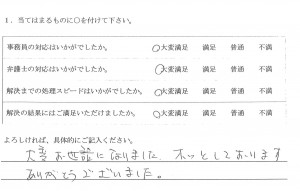 1．当てはまるものに○を付けて下さい。
事務員の対応はいかがでしたか。 ○大変満足 満足 普通 不満
弁護士の対応はいかがでしたか。 ○大変満足 満足 普通 不満
解決までの処理スピードはいかがでしたか。 ○大変満足 満足 普通 不満
解決の結果にはご満足いただけましたか。 ○大変満足 満足 普通 不満
よろしければ、具体的にご記入ください。
大変お世話になりました。ホッとしております
ありがとうございました。